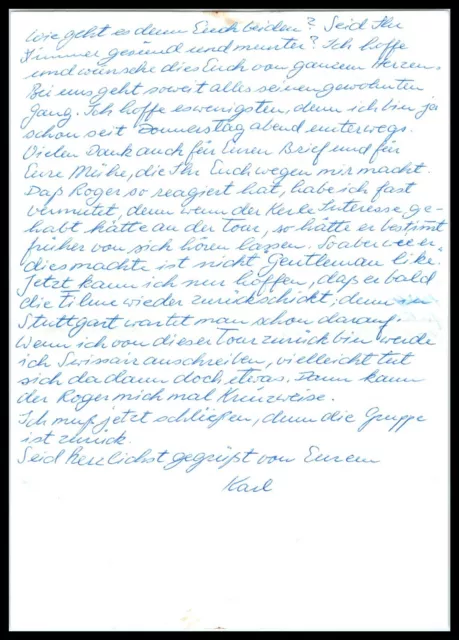 Wie geht es denn Euch beiden? Seid Ihr
immer gesund und munter? Ich hoffe
und wünsche dies Euch von ganzem Herzen.
Bei uns geht soweit alles seinen gewohnten
Gang. Ich hoffe es wenigsten, denn ich bin ja
schon seit Donnerstag abend unterwegs.
Vielen Dank auch für Euren Brief und für
Eure Mühe, die Ihr Euch wegen mir macht.
Daß Roger so reagiert hat, habe ich fast
vermutet, denn wenn der Kerle Interesse ge-
habt hätte an der Tour, so hätte er bestimmt
früher von sich hören lassen. So aber wie er
dies machte ist nicht Gentleman like.
Jetzt kann ich nur hoffen, daß er bald
die Filme wieder zurückschickt, denn in
Stuttgart wartet man schon darauf.
Wenn ich von dieser Tour zurück bin werde
ich Swissair anschreiben, vielleicht tut
sich da dann doch etwas. Dann kann
der Roger mich mal Kreuzweise.
Ich muß jetzt schließen, denn die Gruppe
ist zurück.
Seid herzlichst gegrüßt von Eurem
Karl